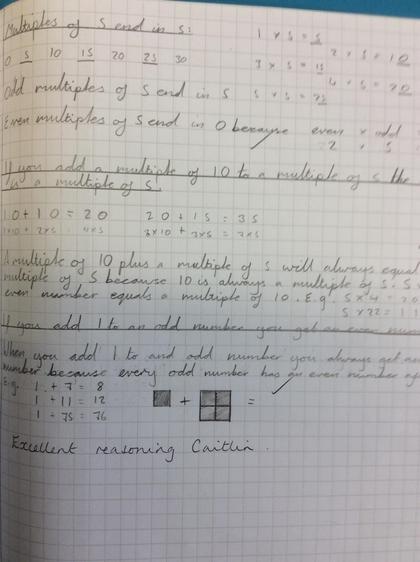 Multiples of 5 end in 5:
1 x 5 = 5
0 5 10 15 20 25 30
2 x 5 = 10
3 x 5 = 15
4 x 5 = 20
Odd multiples of 5 end in 5 5 x 5 = 25
Even multiples of 5 end in 0 because even x odd
2 x 5
If you add a multiple of 10 to a multiple of 5 the
is a multiple of 5.
10 + 10 = 20 20 + 15 = 35
A multiple of 10 plus a multiple of 5 will always equal
multiple of 5 because 10 is always a multiple of 5. 5
even number equals a multiple of 10. E.g. 5 x 4 = 20
5 x 22 = 11
If you add 1 to an odd number you get an even
When you add 1 to and odd number you always get an
number because every odd number has an even number
E.g. 1 + 7 = 8
1 + 11 = 12
1 + 75 = 76
+ =
Excellent reasoning Caitlin.